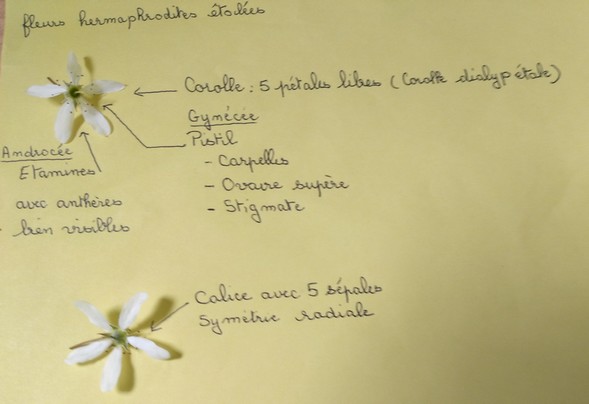 fleurs hermaphrodites étoilées
Corolle : 5 pétales libres (Corolle dialypétale)
Gynécée
Pistil
- Carpelles
- Ovaire supère
- Stigmate
Androcée
Etamines
avec anthères
bien visibles
Calice avec 5 sépales
Symétrie radiale